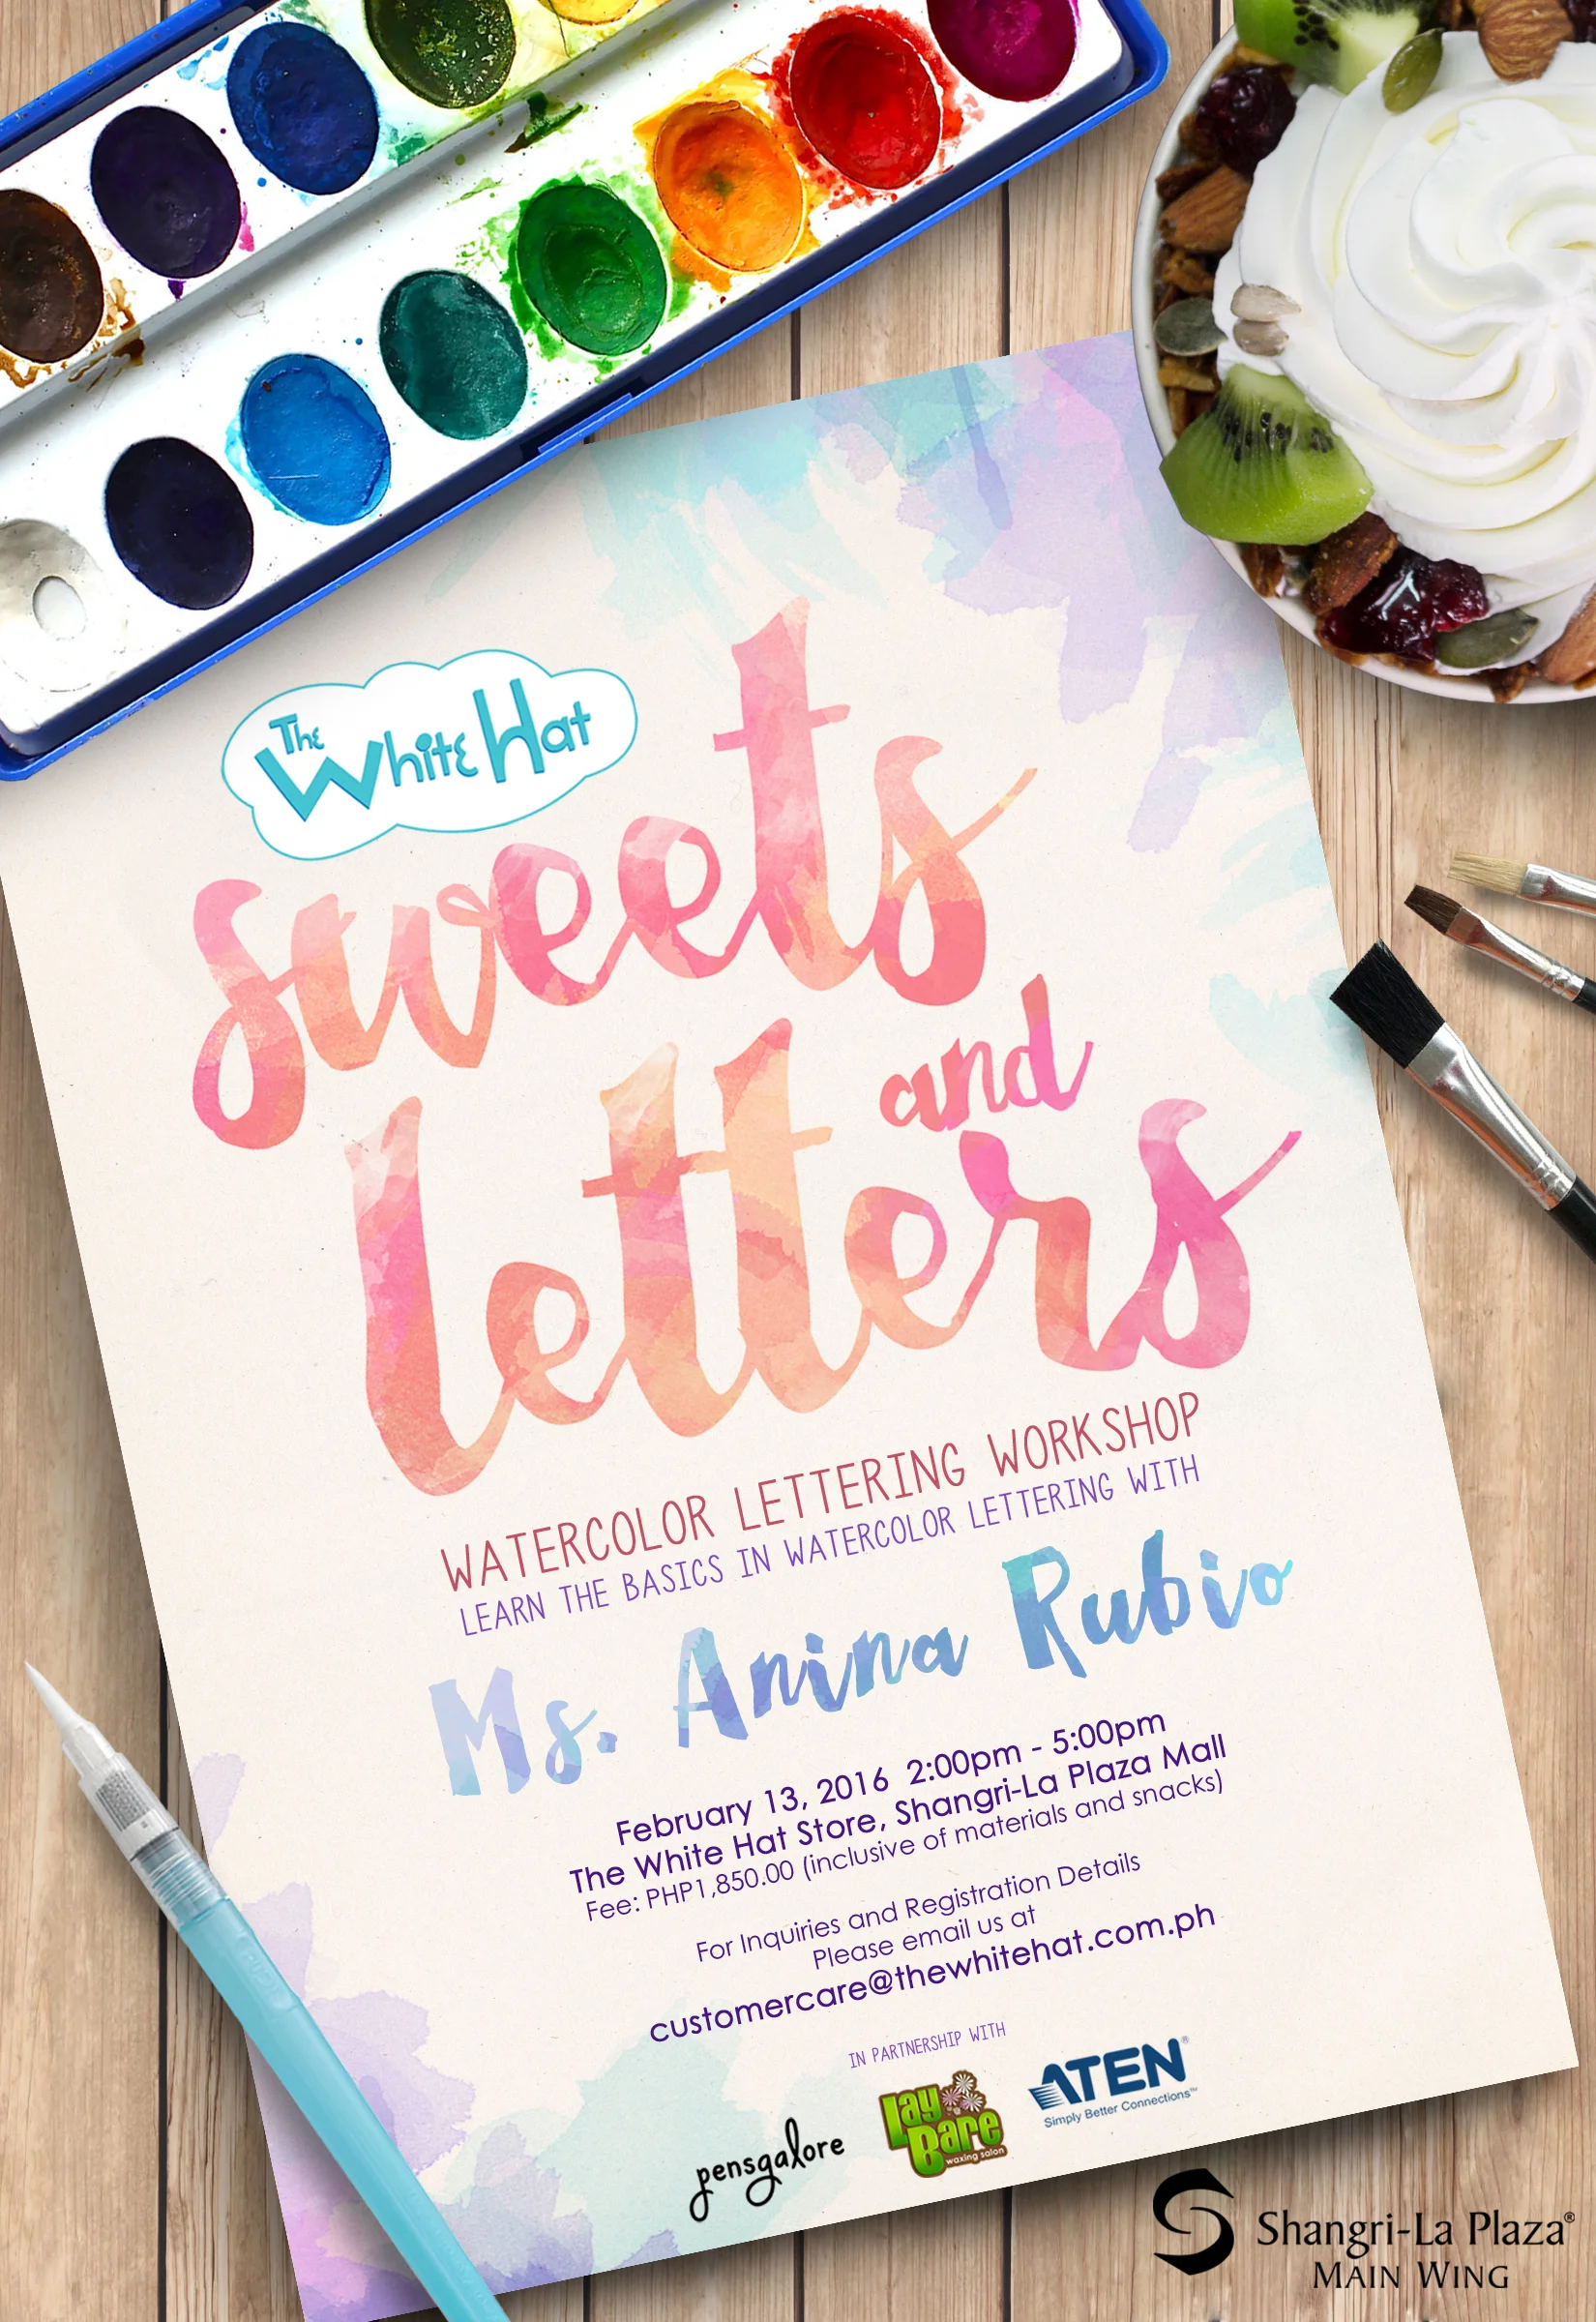 The
White Hat
sweets
and
letters
WATERCOLOR LETTERING WORKSHOP
LEARN THE BASICS IN WATERCOLOR LETTERING WITH
Ms. Anina Rubio
February 13, 2016 2:00pm - 5:00pm
The White Hat Store, Shangri-La Plaza Mall
Fee: PHP1,850.00 (inclusive of materials and snacks)
For Inquiries and Registration Details
Please email us at
customercare@thewhitehat.com.ph
IN PARTNERSHIP WITH
pensgalore
Lay
Bare
waxing salon
ATEN®
Simply Better Connections™
Shangri-La Plaza®
MAIN WING